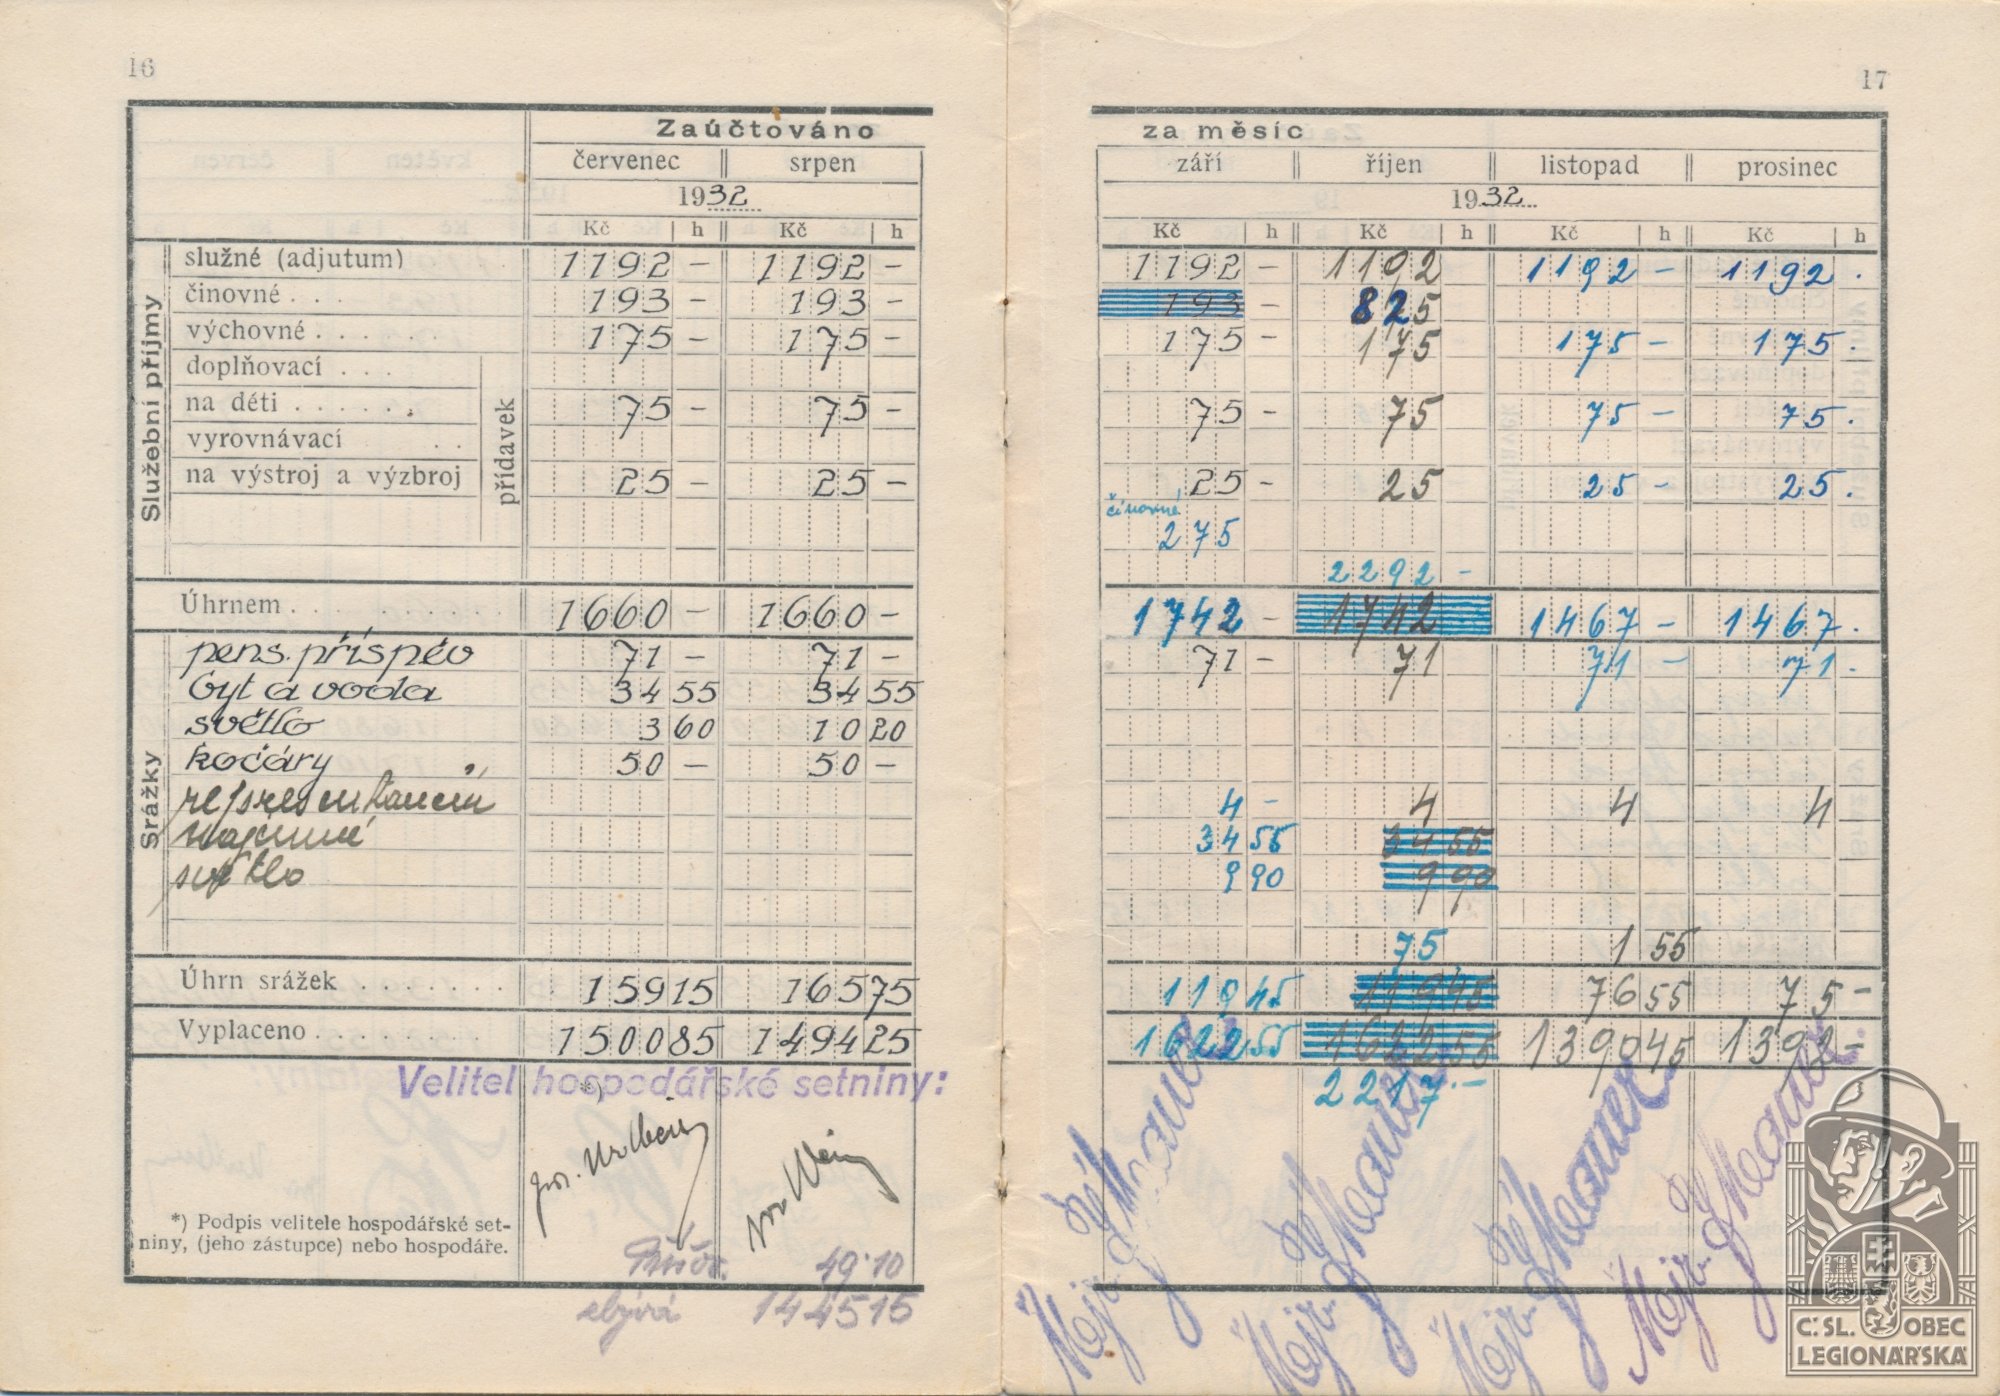 16
Zaúčtováno
červenec srpen
1932
Kč h Kč h
Služební příjmy
služné (adjutum) 1192 – 1192 –
činovné . . . 193 – 193 –
výchovné . . . . . . 175 – 175 –
doplňovací . . .
na děti . . . . . . 75 – 75 –
vyrovnávací . .
na výstroj a výzbroj 25 – 25 –
přídavek
Úhrnem . . . . . . . . . . 1660 – 1660 –
Srážky
pens. příspěv 71 – 71 –
byt a voda 34 55 34 55
světlo 3 60 10 20
kočáry 50 – 50 –
representační
nájemné
světlo
Úhrn srážek . . . . . . . 159 15 165 75
Vyplaceno . . . . . . . . 1500 85 1494 25
Velitel hospodářské setniny:
*) Podpis velitele hospodářské set-
niny, (jeho zástupce) nebo hospodáře.
49·10
zbývá 1445 15
17
za měsíc
září říjen listopad prosinec
1932
Kč h Kč h Kč h Kč h
1192 – 1192 1192 – 1192 .
193 – 825
175 – 175 175 – 175 .
75 – 75 75 – 75 .
25 – 25 25 – 25 .
činovné
275
2292 –
1742 – 1742 1467 – 1467 .
71 – 71 71 – 71 .
4 – 4 4 4
34 55 34 55
9 90 9 90
75 1 55
119 45 119 45 76 55 75 –
1622 55 1622 55 1390 45 1392 –
2217 . –
Č.SL. OBEC
LEGIONÁŘSKÁ